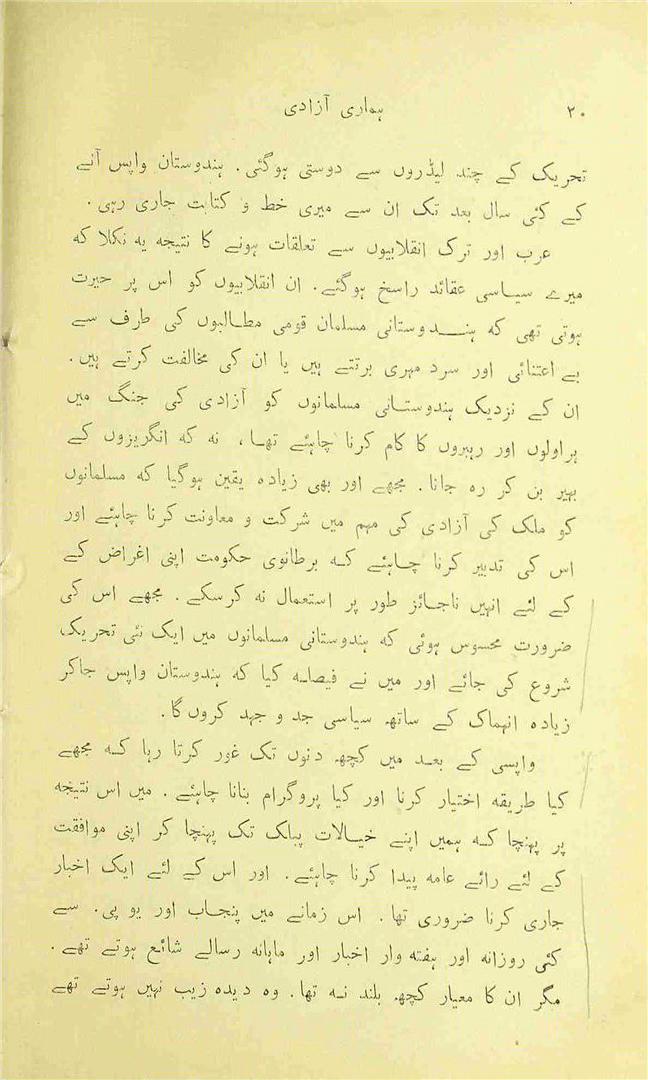 ۲۰ ہماری آزادی
تحریک کے چند لیڈروں سے دوستی ہوگئی۔ ہندوستان واپس آنے
کے کئی سال بعد تک ان سے میری خط و کتابت جاری رہی۔
عرب اور ترک انقلابیوں سے تعلقات ہونے کا نتیجہ یہ نکلا کہ
میرے سیاسی عقائد راسخ ہوگئے۔ ان انقلابیوں کو اس پر حیرت
ہوتی تھی کہ ہندوستانی مسلمان قومی مطالبوں کی طرف سے
بے اعتنائی اور سرد مہری برتتے ہیں یا ان کی مخالفت کرتے ہیں۔
ان کے نزدیک ہندوستانی مسلمانوں کو آزادی کی جنگ میں
ہراولوں اور رہبروں کا کام کرنا چاہئے تھا، نہ کہ انگریزوں کے
بہیر بن کر رہ جانا۔ مجھے اور بھی زیادہ یقین ہوگیا کہ مسلمانوں
کو ملک کی آزادی کی مہم میں شرکت و معاونت کرنا چاہئے اور
اس کی تدبیر کرنا چاہئے کہ برطانوی حکومت اپنی اغراض کے
کے لئے انہیں ناجائز طور پر استعمال نہ کرسکے۔ مجھے اس کی
ضرورت محسوس ہوئی کہ ہندوستانی مسلمانوں میں ایک نئی تحریک
شروع کی جائے اور میں نے فیصلہ کیا کہ ہندوستان واپس جاکر
زیادہ انہماک کے ساتھ سیاسی جد و جہد کروں گا۔
واپسی کے بعد میں کچھ دنوں تک غور کرتا رہا کہ مجھے
کیا طریقہ اختیار کرنا اور کیا پروگرام بنانا چاہئے۔ میں اس نتیجہ
پر پہنچا کہ ہمیں اپنے خیالات پبلک تک پہنچا کر اپنی موافقت
کے لئے رائے عامہ پیدا کرنا چاہئے۔ اور اس کے لئے ایک اخبار
جاری کرنا ضروری تھا۔ اس زمانے میں پنجاب اور یو پی۔ سے
کئی روزانہ اور ہفتہ وار اخبار اور ماہانہ رسالے شائع ہوتے تھے۔
مگر ان کا معیار کچھ بلند نہ تھا۔ وہ دیدہ زیب نہیں ہوتے تھے